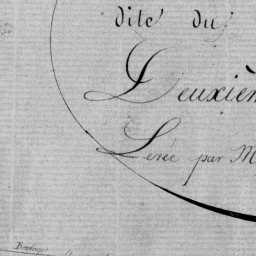 dite du
Deuxièm
Levée par M